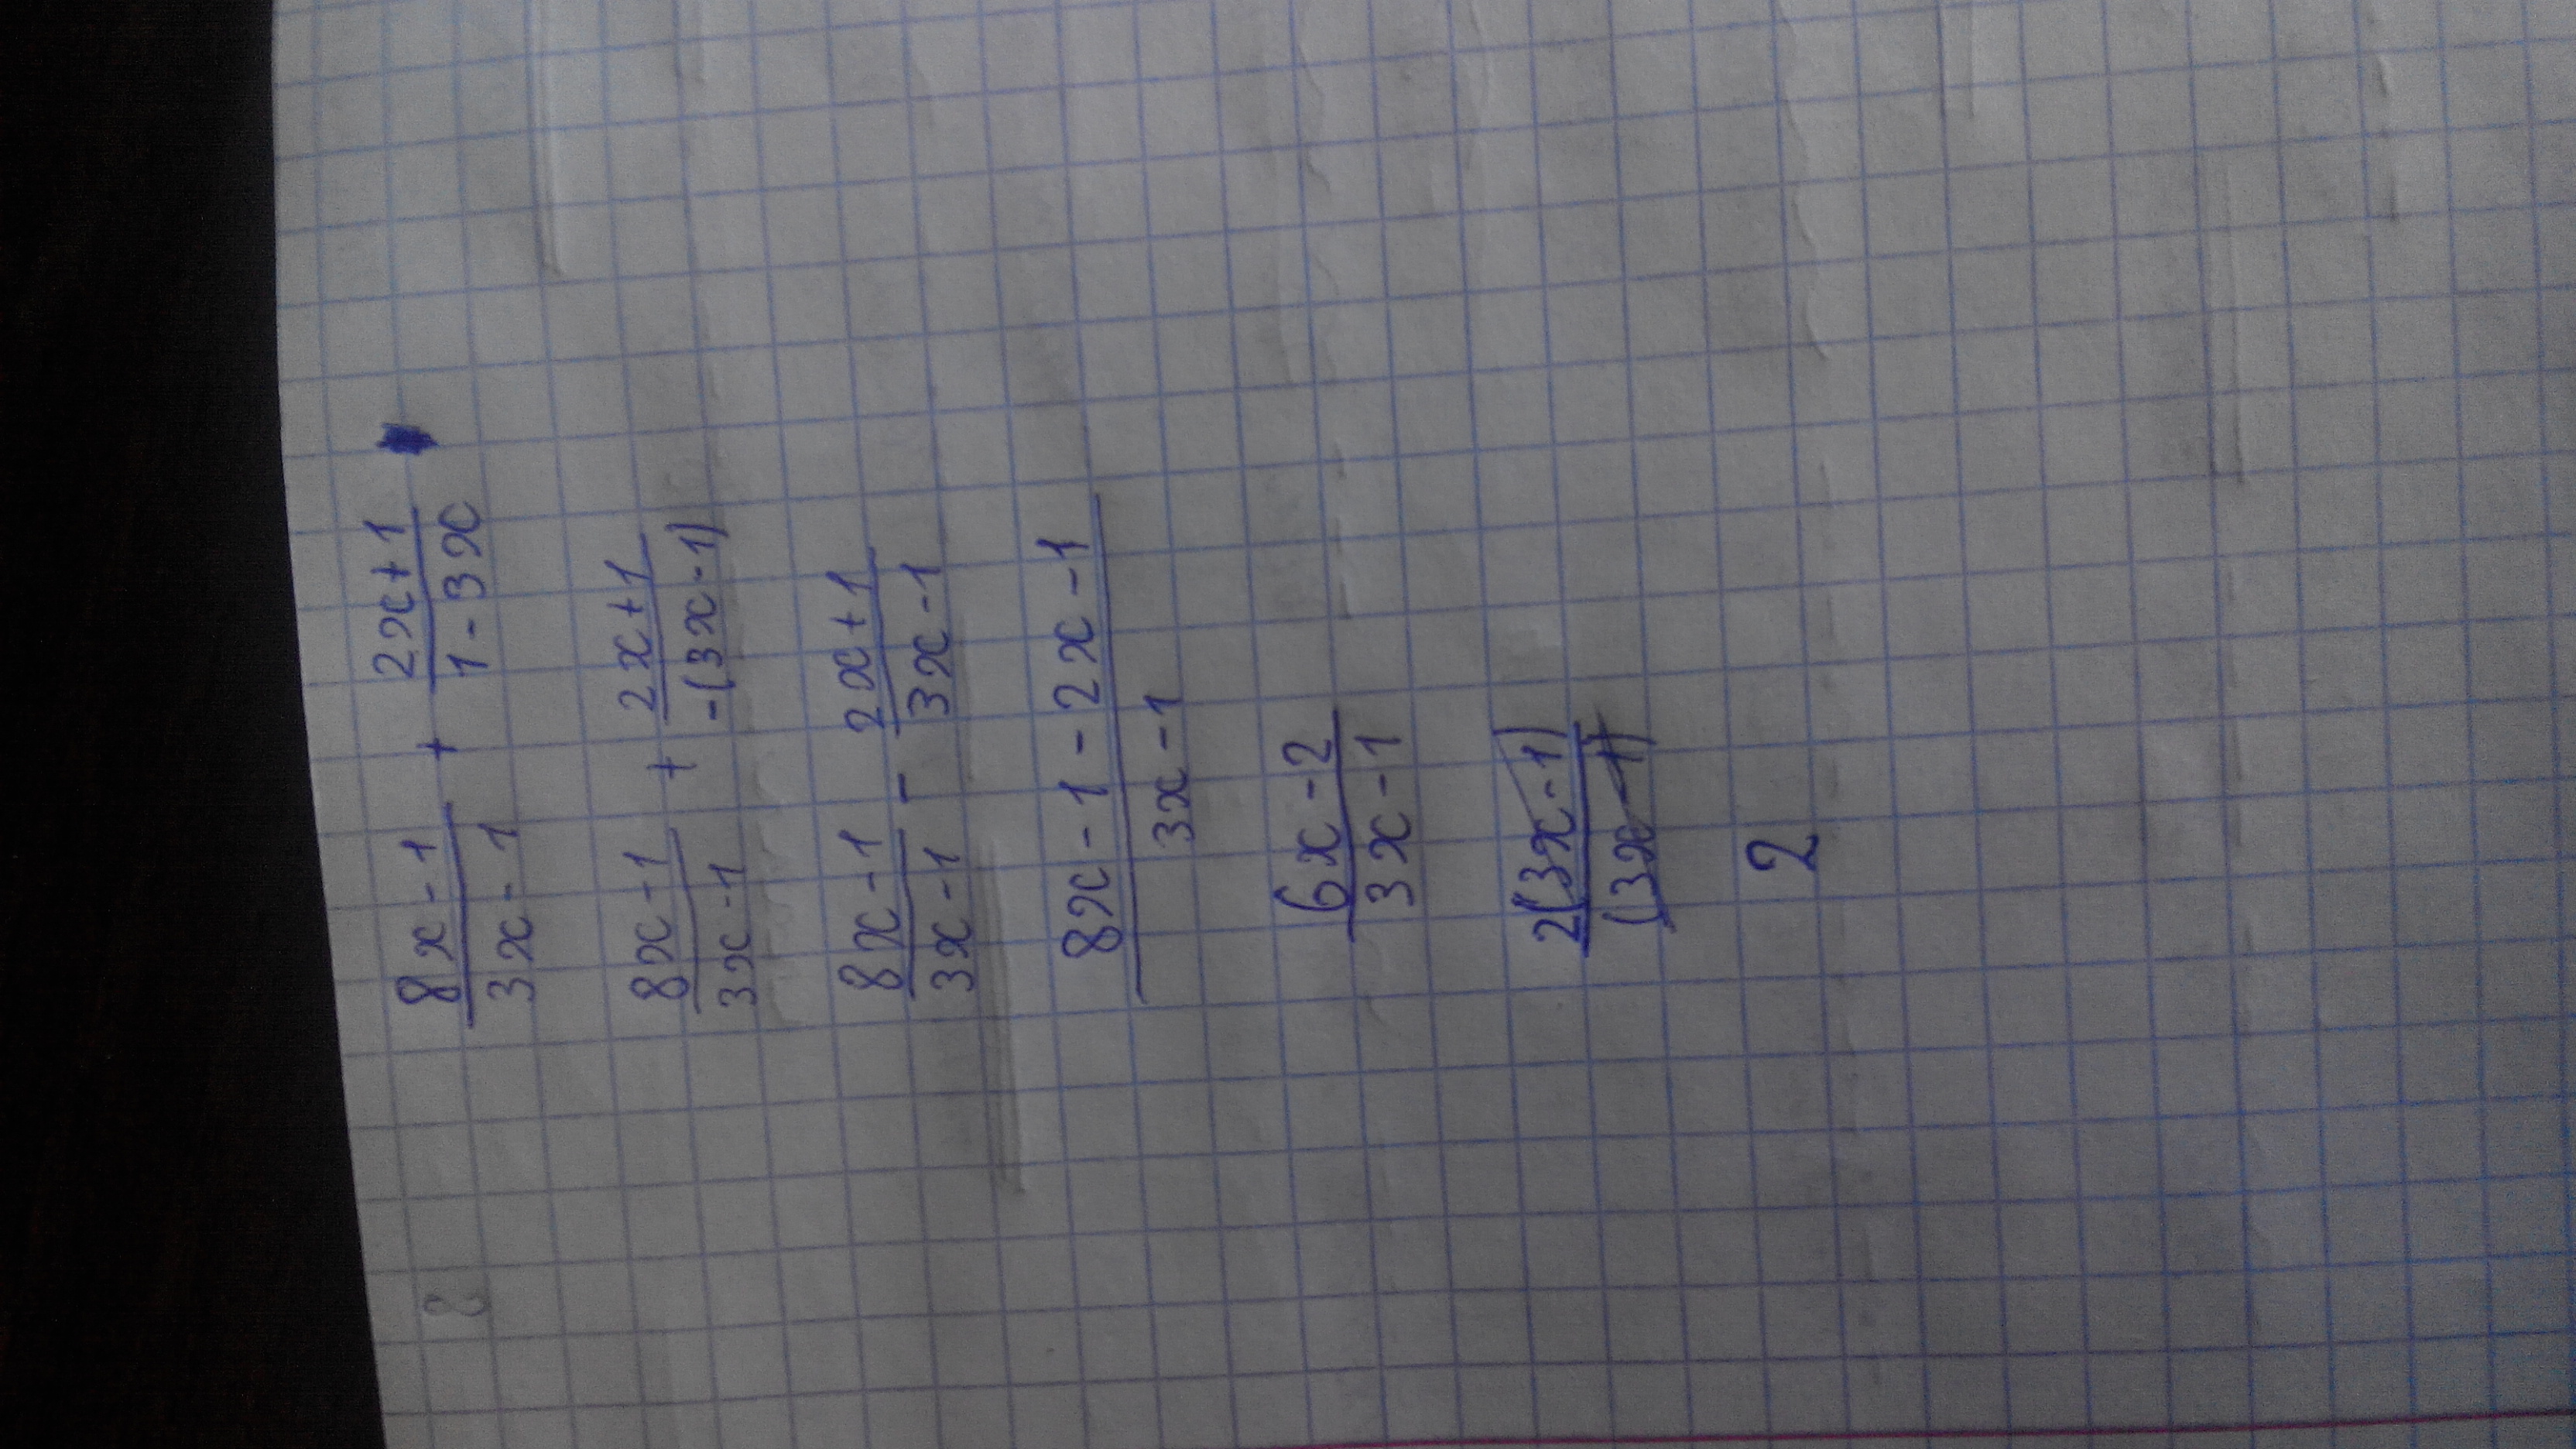 (8x - 1)/(3x - 1) + (2x + 1)/(1 - 3x)
(8x - 1)/(3x - 1) + (2x + 1)/(-(3x - 1))
(8x - 1)/(3x - 1) - (2x + 1)/(3x - 1)
(8x - 1 - 2x - 1)/(3x - 1)
(6x - 2)/(3x - 1)
2(3x - 1)/(3x - 1)
2